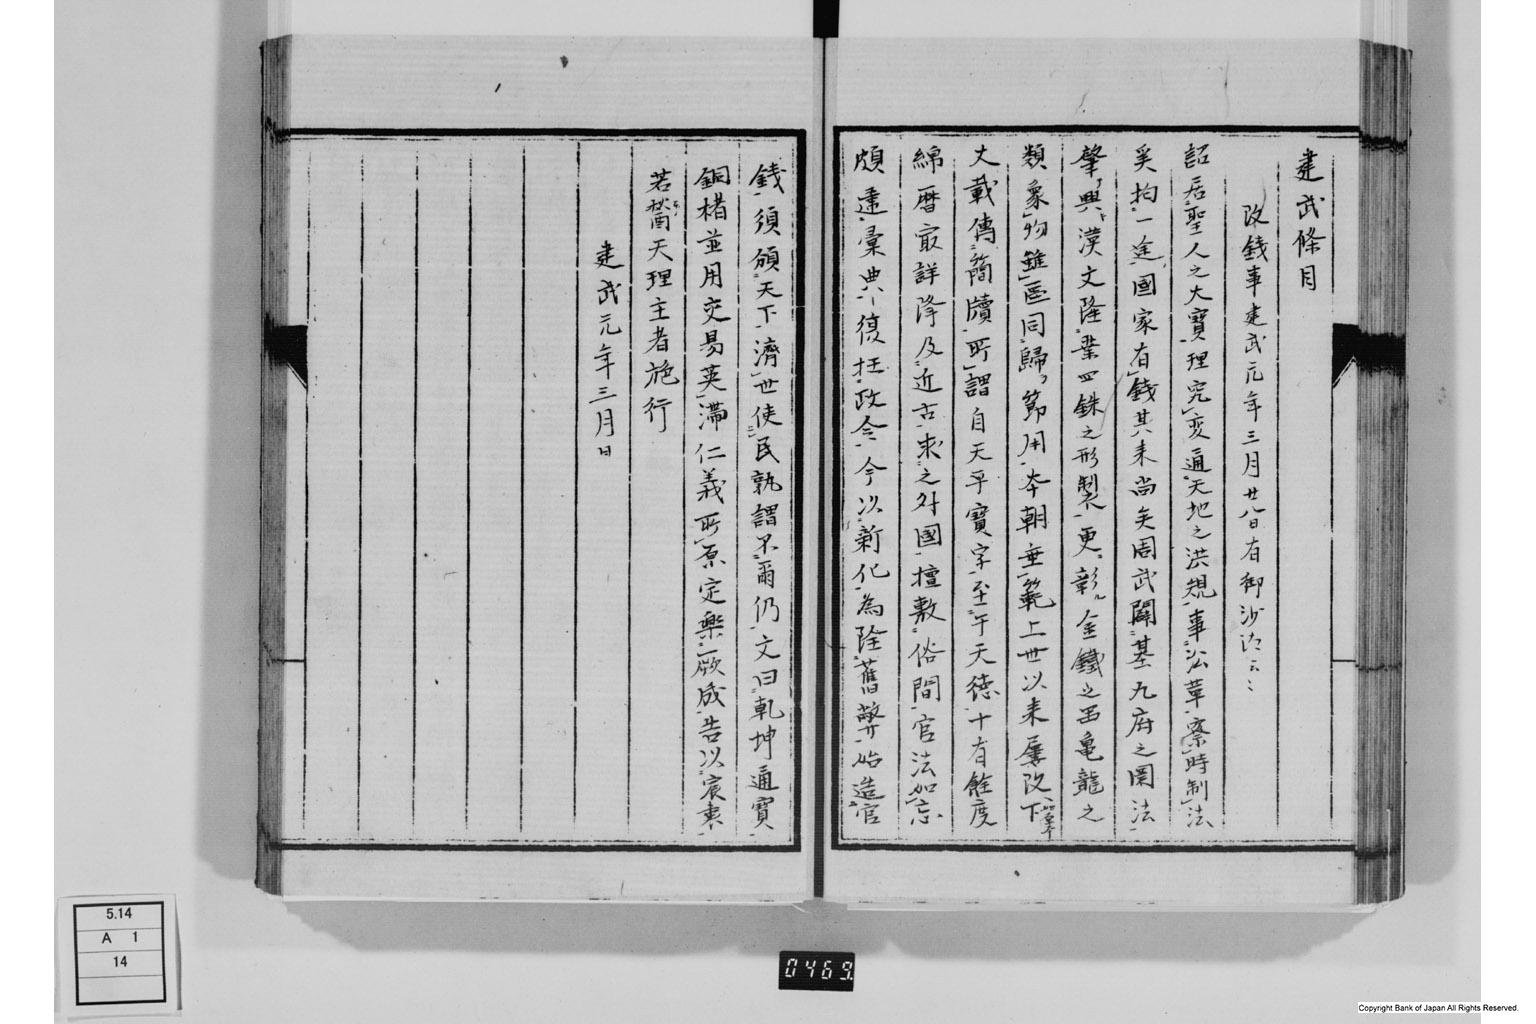 建武條目
改錢事建武元年三月廿八日有御沙汰云々
詔居聖人之大寶理究変通天地之洪規事公葦察時制法
奚拘一途國家有錢其来尚矣周武闢基九府之圜法
肇興漢文隆業四銖之形製更彰金鐵之品亀龍之
類象物雖區同歸節用本朝垂範上世以来屢改下
丈載傳簡牘所謂自天平寶字至于天德十有餘度
綿曆㝡詳降及近古求之外國擅敷俗間官法如忘
頗違彙典復枉政今今以新化為除舊弊始造官
錢須頒天下濟世使民孰謂不爾仍文曰乾坤通寶
銅楮並用交易莫滯仁義所原定樂厥成告以宸衷
若䤃天理主者施行
建武元年三月日
5.14
A 1
14
0469
Copyright Bank of Japan All Rights Reserved.